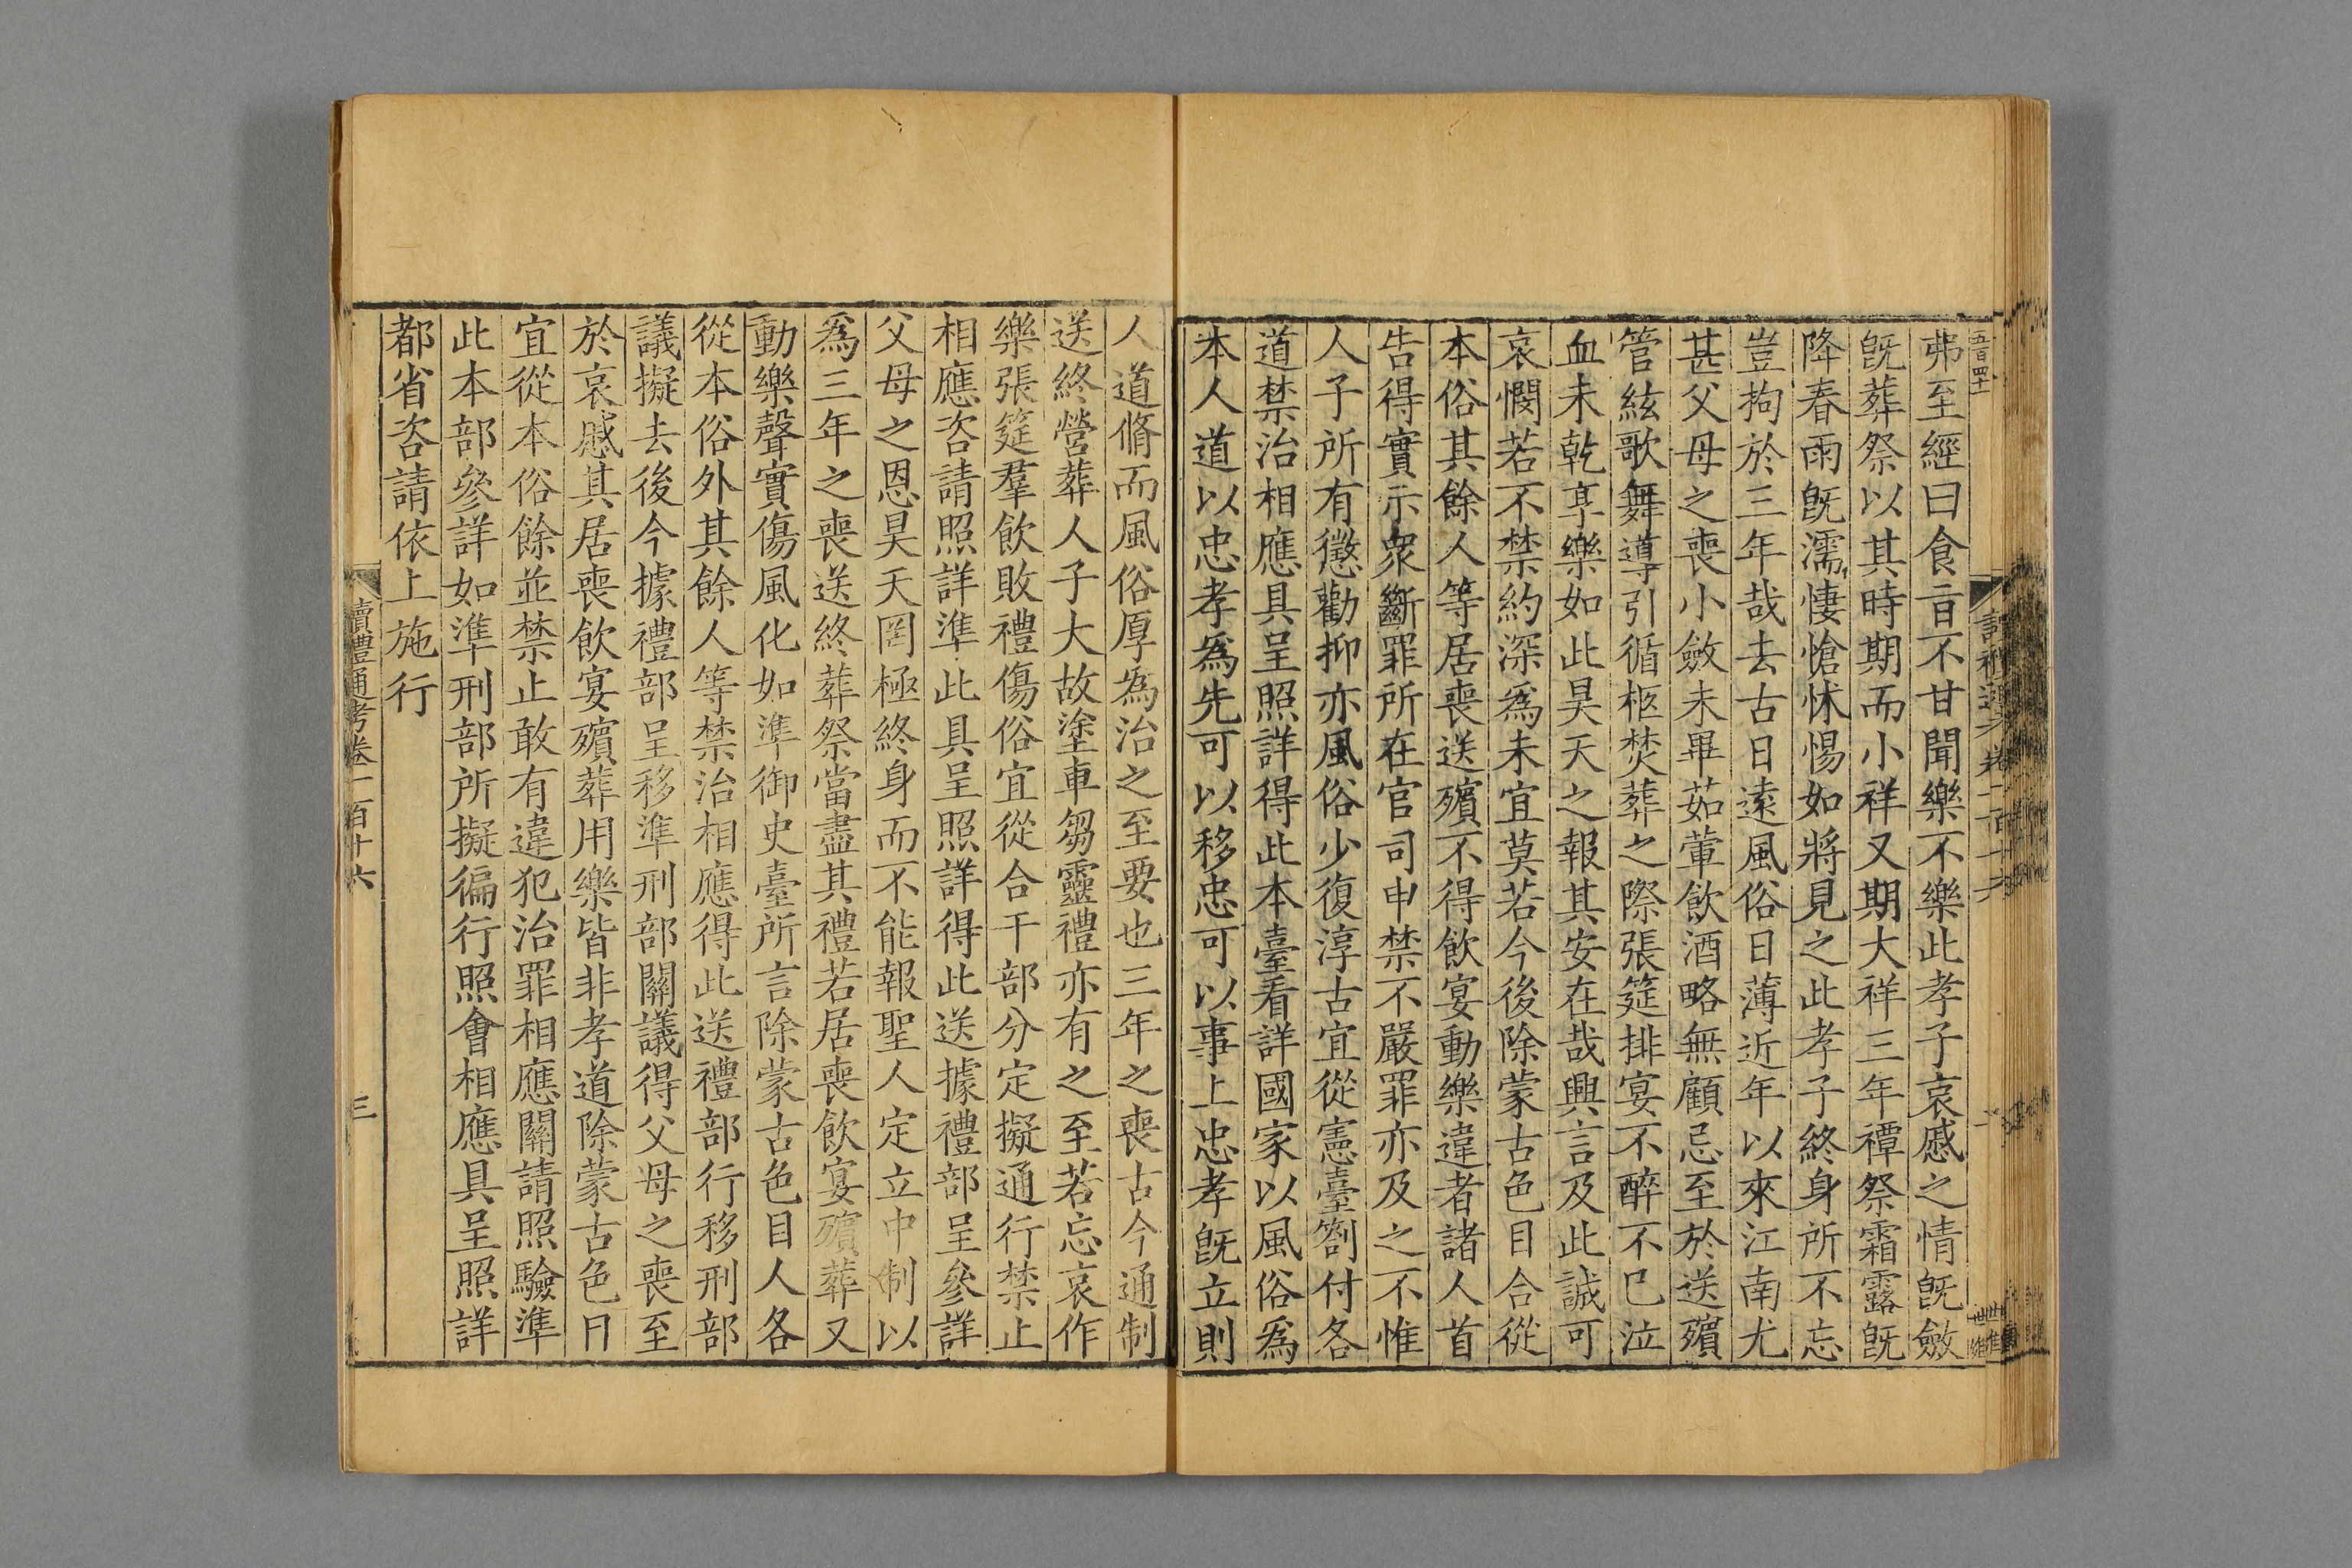 五百四十
弗至經曰食旨不甘聞樂不樂此孝子哀戚之情旣斂
旣葬祭以其時期而小祥又期大祥三年禫祭霜露旣
降春雨旣濡悽愴怵惕如將見之此孝子終身所不忘
豈拘於三年哉去古日遠風俗日薄近年以來江南尤
甚父母之喪小斂未畢茹葷飲酒略無顧忌至於送殯
管絃歌舞導引循柩焚葬之際張筵排宴不醉不已泣
血未乾享樂如此昊天之報其安在哉興言及此誠可
哀憫若不禁約深爲未宜莫若今後除蒙古色目合從
本俗其餘人等居喪送殯不得飲宴動樂違者諸人首
告得實示衆斷罪所在官司申禁不嚴罪亦及之不惟
人子所有懲勸抑亦風俗少復淳古宜從憲臺劄付各
道禁治相應具呈照詳得此本臺看詳國家以風俗爲
本人道以忠孝爲先可以移忠可以事上忠孝旣立則
人道脩而風俗厚爲治之至要也三年之喪古今通制
送終營葬人子大故塗車芻靈禮亦有之至若忘哀作
樂張筵羣飲敗禮傷俗宜從合干部分定擬通行禁止
相應咨請照詳準此具呈照詳得此送據禮部呈參詳
父母之恩昊天罔極終身而不能報聖人定立中制以
爲三年之喪送終葬祭當盡其禮若居喪飲宴殯葬又
動樂聲實傷風化如準御史臺所言除蒙古色目人各
從本俗外其餘人等禁治相應得此送禮部行移刑部
議擬去後今據禮部呈移準刑部關議得父母之喪至
於哀戚其居喪飲宴殯葬用樂皆非孝道除蒙古色目
宜從本俗餘並禁止敢有違犯治罪相應關請照驗準
此本部參詳如準刑部所擬徧行照會相應具呈照詳
都省咨請依上施行
讀禮通考卷一百十六
三